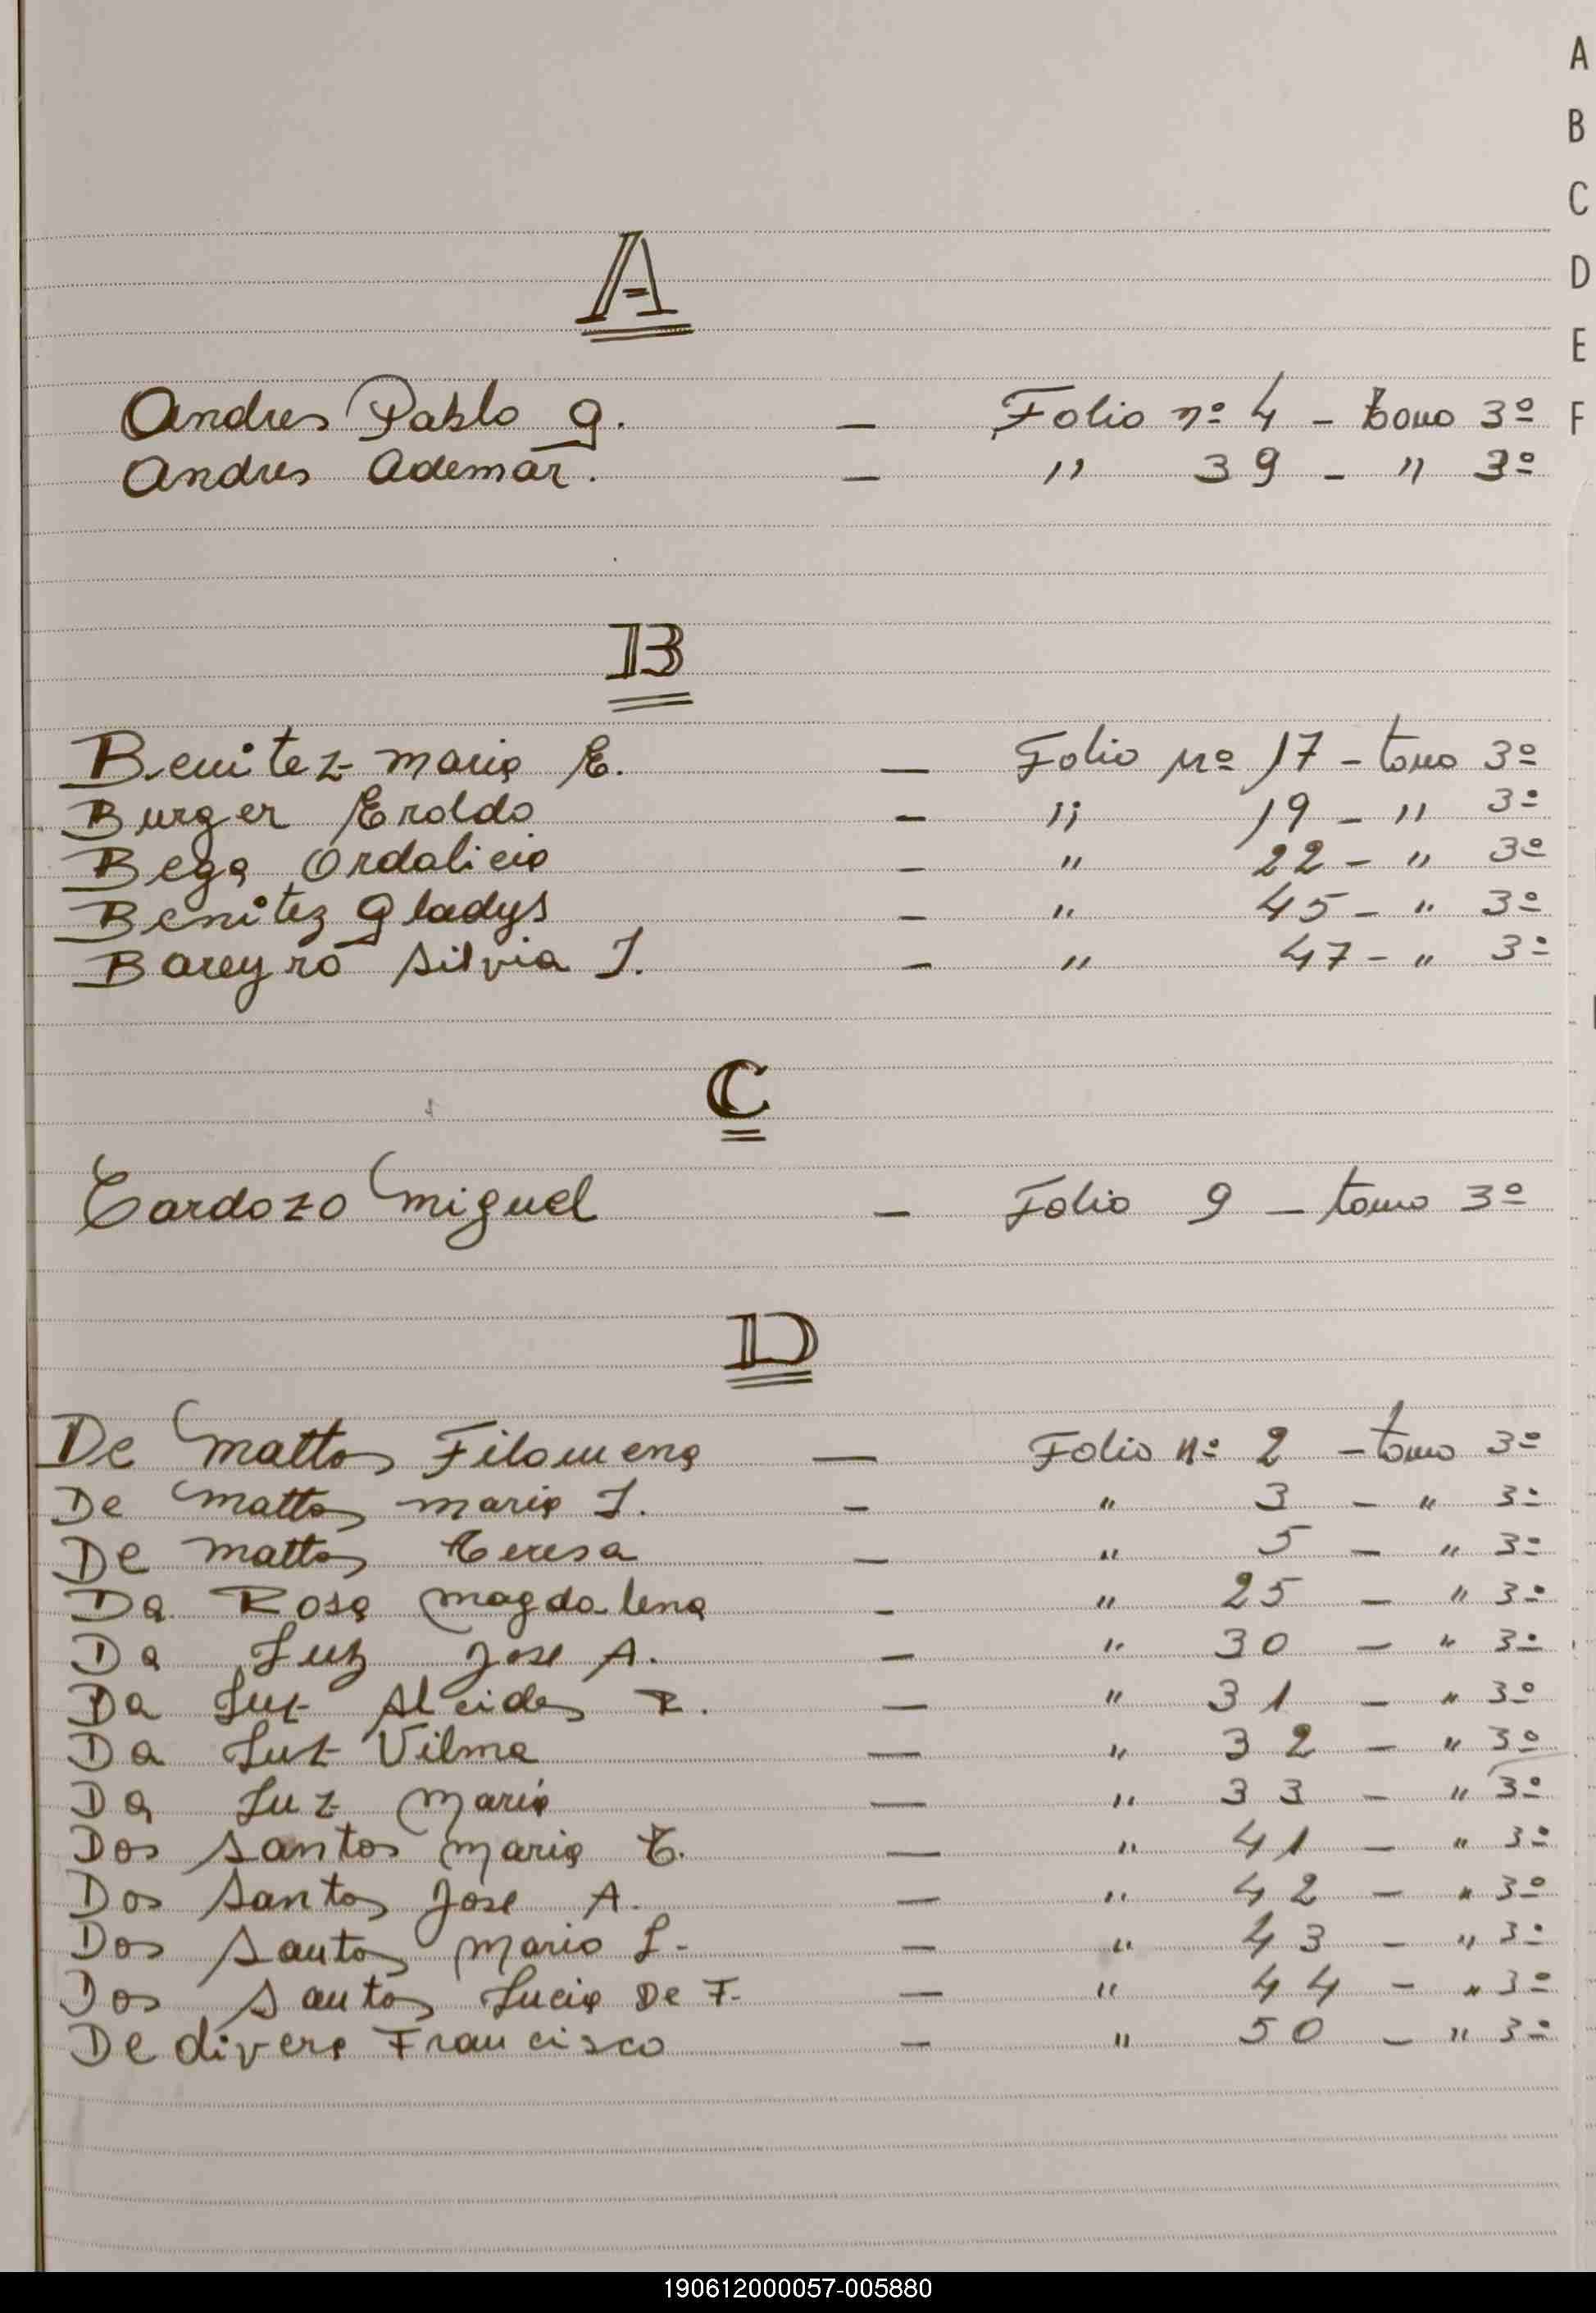 A
B
C
D
E
F
A
Andres Pablo G. — Folio nº 4 - tomo 3º
Andres Ademar. — " 39 - " 3º
B
Benitez Maria E. — Folio nº 17 - tomo 3º
Burger Eroldo — " 19 - " 3º
Bega Ordalicia — " 22 - " 3º
Benitez Gladys — " 45 - " 3º
Bareyro Silvia I. — " 47 - " 3º
C
Cardozo Miguel — Folio 9 - tomo 3º
D
De Mattos Filomena — Folio nº 2 - tomo 3º
De Mattos Maria I. — " 3 - " 3º
De Mattos Teresa — " 5 - " 3º
Da Rosa Magdalena — " 25 - " 3º
Da Luz Jose A. — " 30 - " 3º
Da Luz Alcides R. — " 31 - " 3º
Da Luz Vilma — " 32 - " 3º
Da Luz Maria — " 33 - " 3º
Dos Santos Maria T. — " 41 - " 3º
Dos Santos Jose A. — " 42 - " 3º
Dos Santos Mario L. — " 43 - " 3º
Dos Santos Lucia De F. — " 44 - " 3º
De Francisco — " 50 - " 3º
190612000057-005880